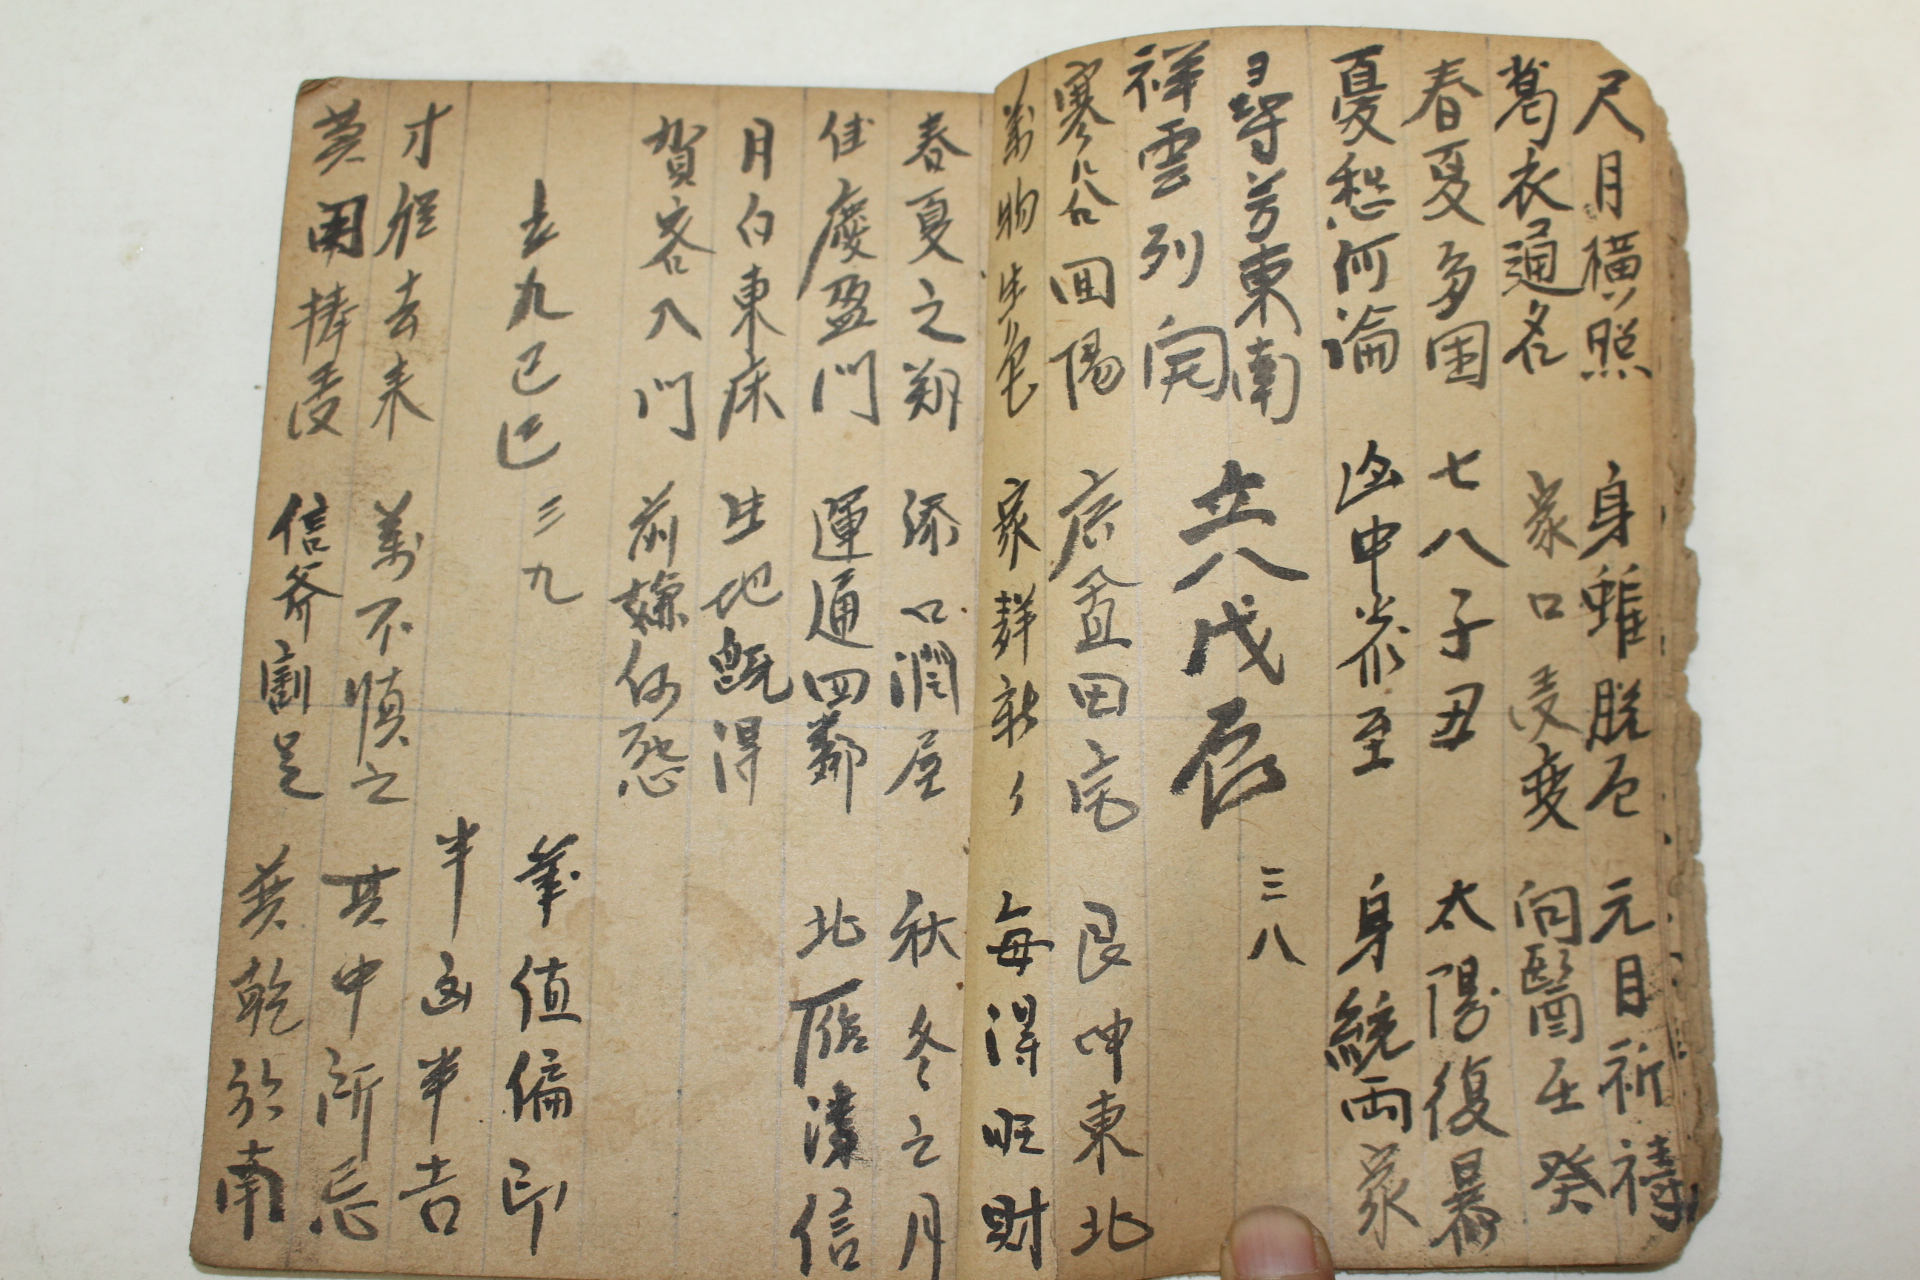 尺月橫照 身雖脫厄 元目祈禱
葛衣通名 家口憂變 問醫壬癸
春夏多困 七八子丑 太陽復暴
憂愁何論 凶申岩至 身統兩家
尋芳東南 三八
祥雲列開 六八戊辰
寒谷回陽 広置田宅 艮坤東北
萬物生光 家群新々 每得旺財
春夏之朔 添口潤屋 秋冬之月
佳慶盈門 運通四鄰 北雁漢信
月白東床 生地旣得
賀客入門 前嫌何怨
六九己巳 三九 筆值偏印
半凶半吉
才從去來 萬不慎之 其中所忌
莫用捧憂 信斧劃足 莫乾於南